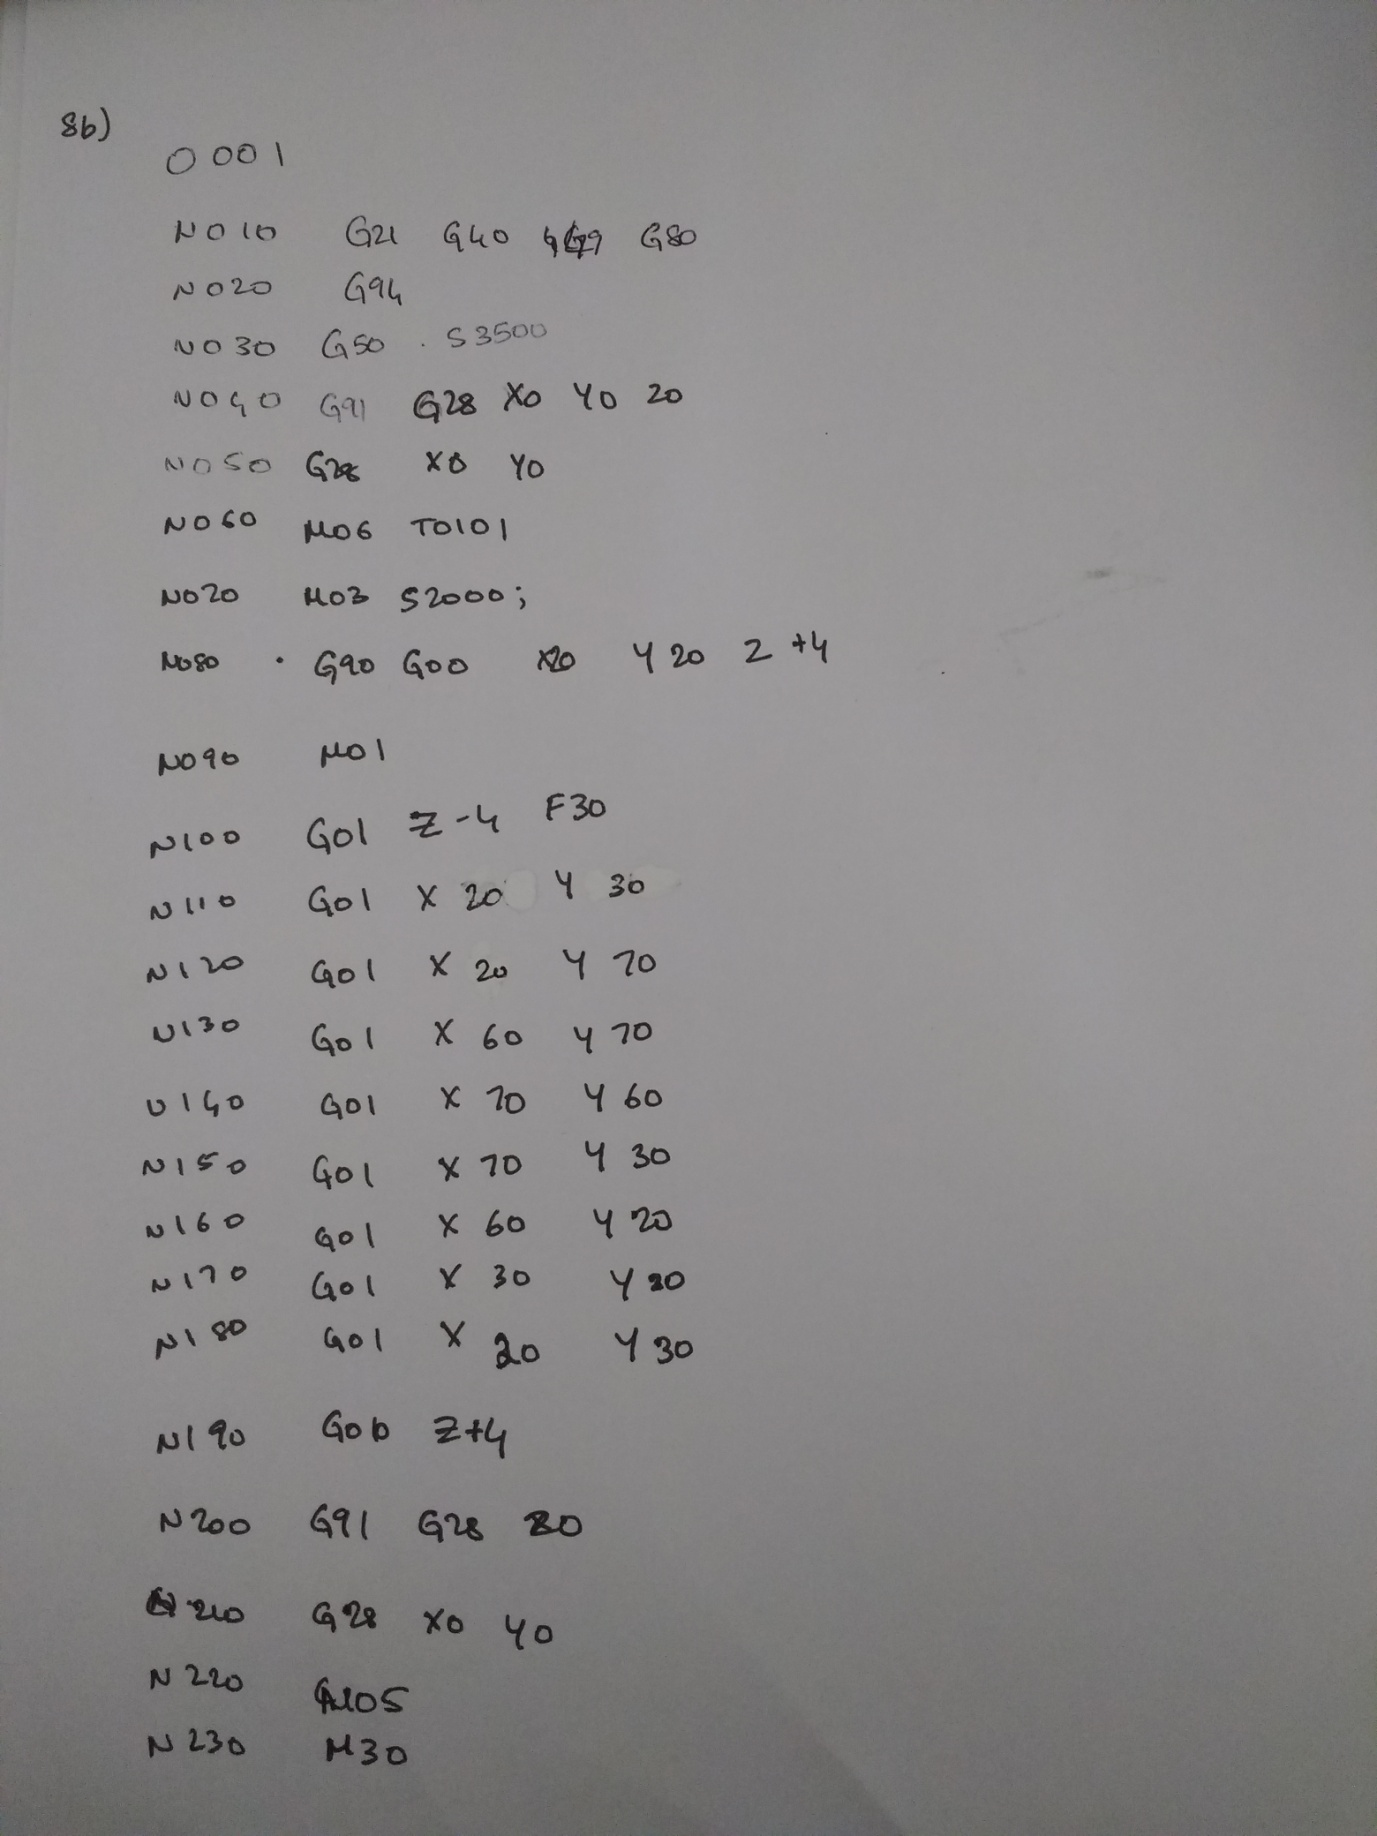 8b)
O 001
N010 G21 G40 G80
N020 G94
N030 G50 . S3500
N040 G91 G28 X0 Y0 Z0
N050 G28 X0 Y0
N060 M06 T0101
N070 M03 S2000;
N080 . G90 G00 X20 Y 20 Z +4
N090 M01
N100 G01 Z-4 F30
N110 G01 X 20 Y 30
N120 G01 X 20 Y 70
N130 G01 X 60 Y 70
N140 G01 X 70 Y 60
N150 G01 X 70 Y 30
N160 G01 X 60 Y 20
N170 G01 X 30 Y 20
N180 G01 X 20 Y 30
N190 G00 Z+4
N200 G91 G28 Z0
N210 G28 X0 Y0
N220 M05
N230 M30